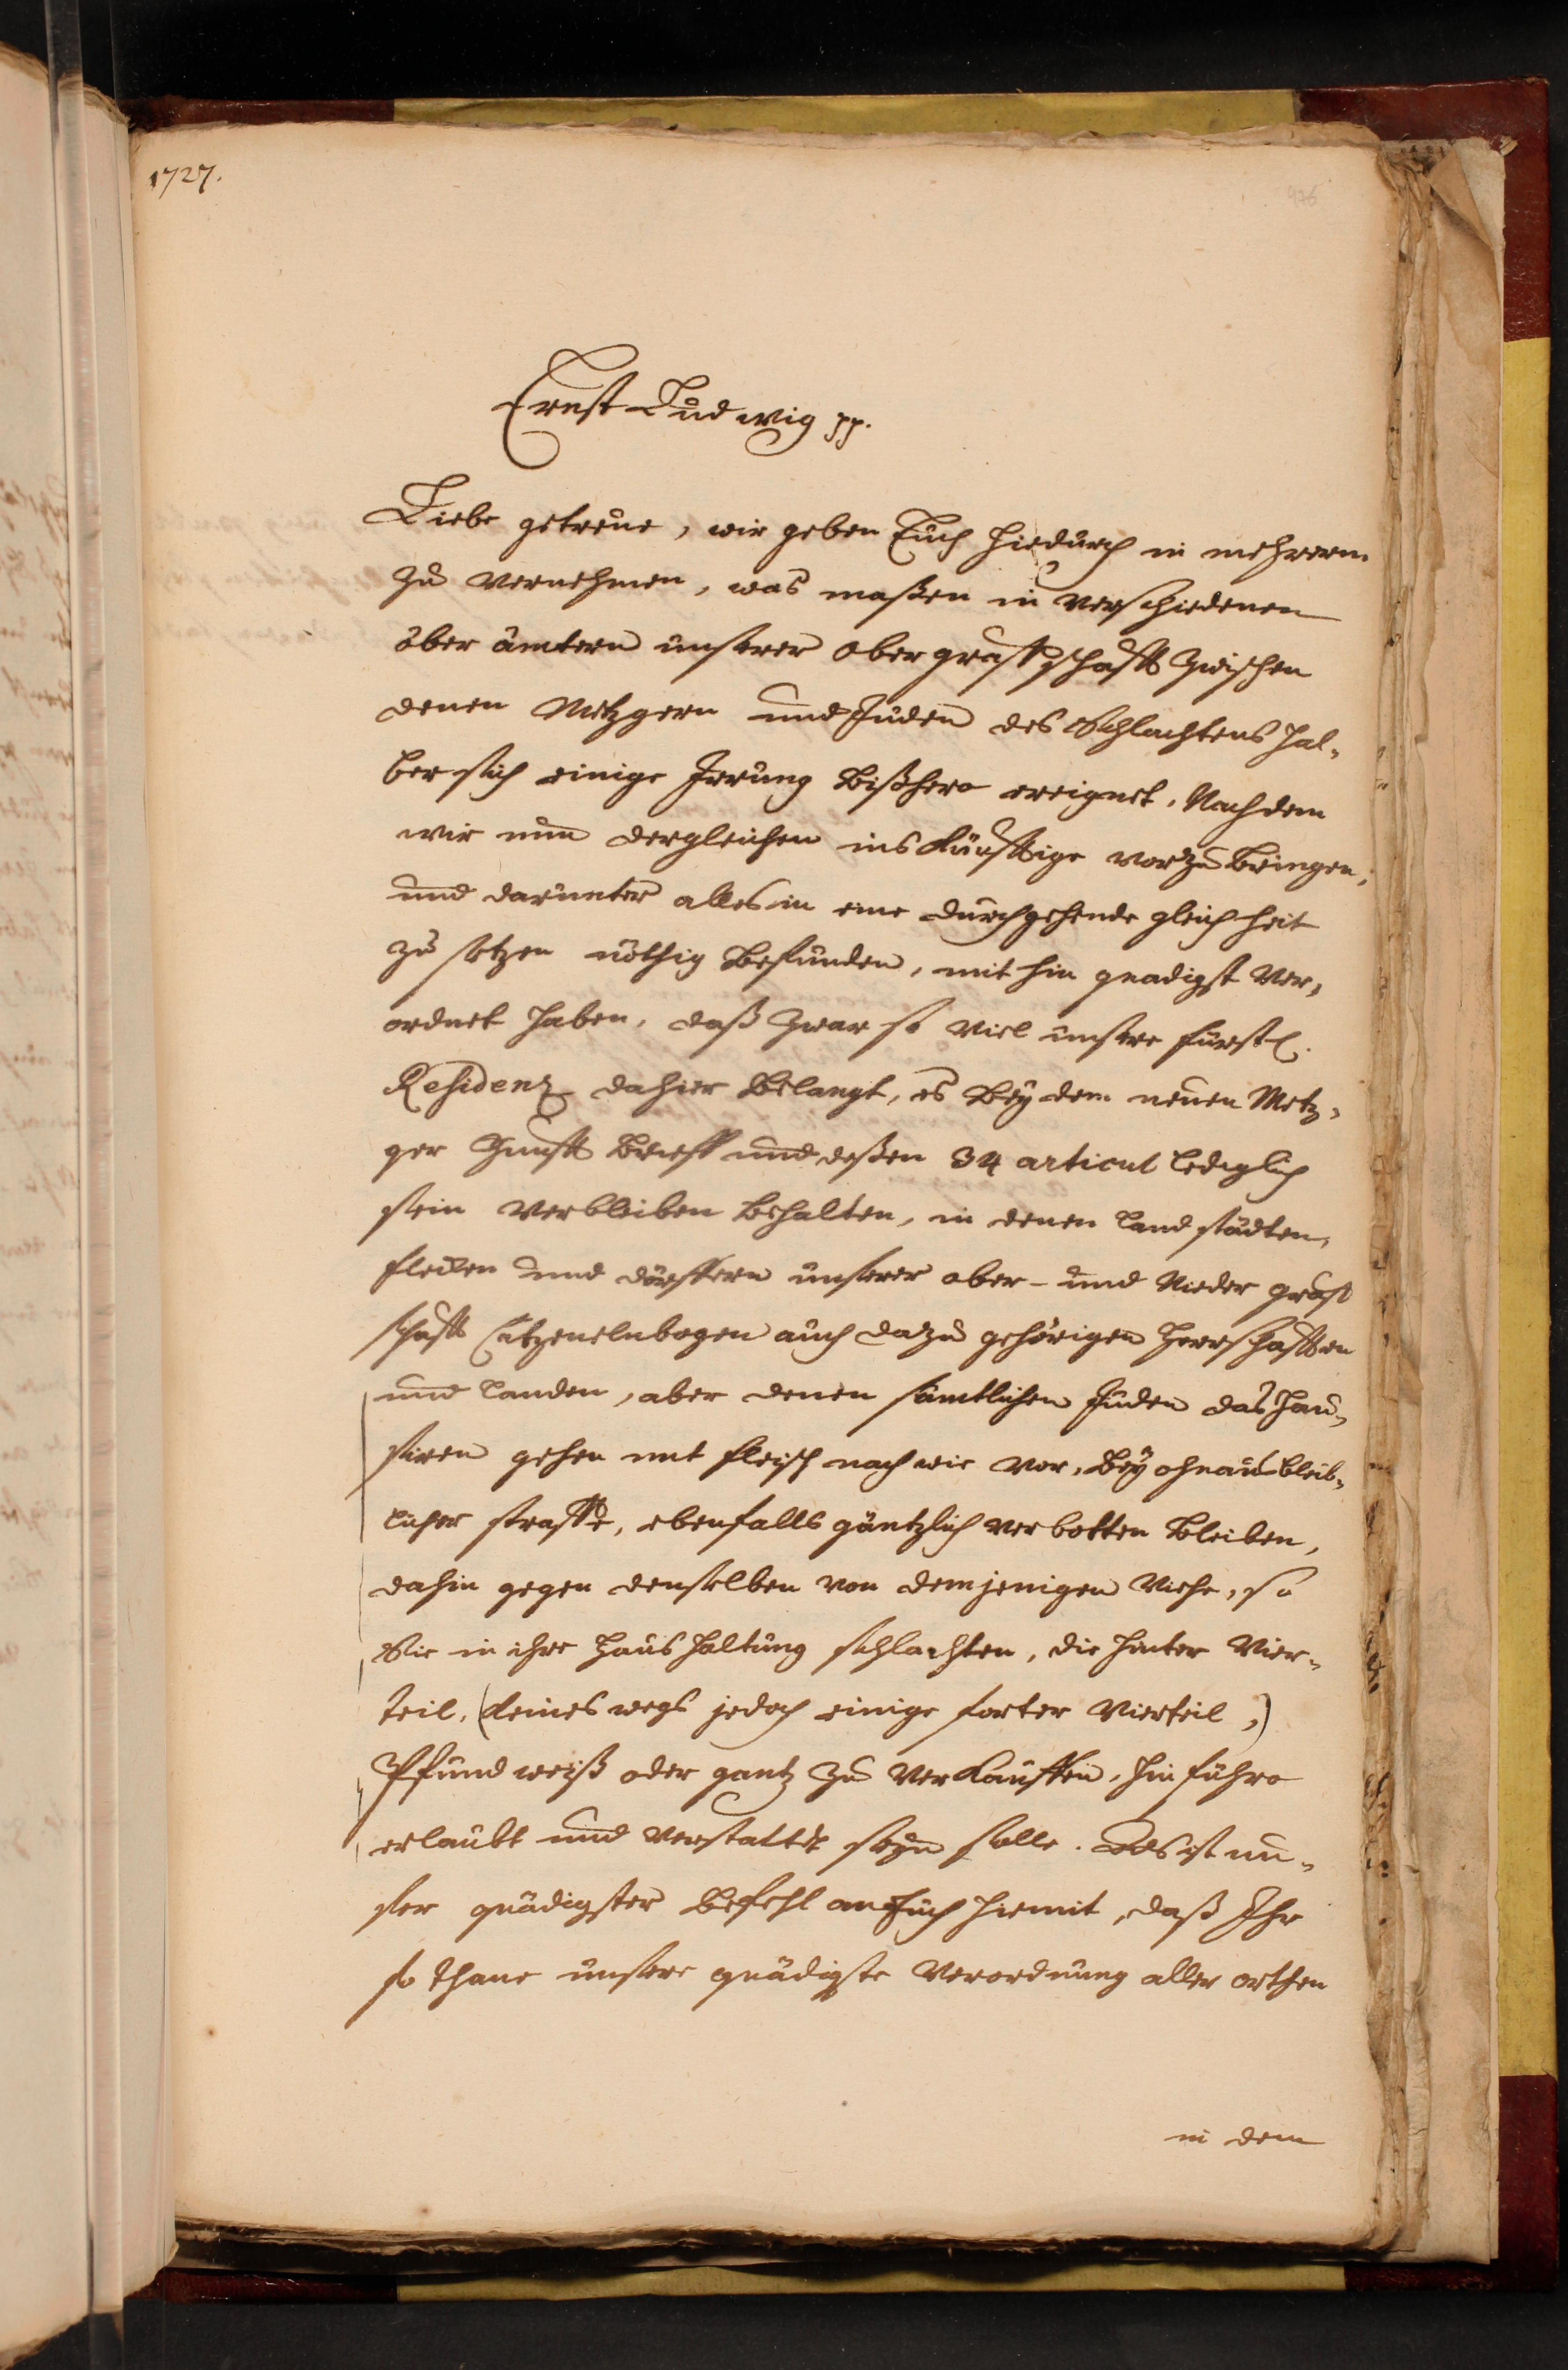 1727.
476
Ernst Ludwig pp.
Liebe getreüe, wir geben Eüch hiedurch in mehrerm
zu vernehmen, was maßen in verschiedenen
über ämtern unserer Obergraffschafft zwischen
denen Metzgern und Juden des Schlachtens hal-
ber sich einige Irrung bißhero ereignet, Nachdem
wir nun dergleichen ins künfftige vorzubringen,
und darunter alles in eine durchgehende gleichheit
zu setzen nöthig befunden, mit hin gnädigst ver-
ordnet haben, daß zwar so viel unsere fürstl.
Residenz dahier belangt, es bey dem neuen Metz-
ger Zunfft brieff und deßen 34 articul lediglich
sein verbleiben behalten, in denen Land städten,
flecken und dörffern unserer ober- und Nieder graff
schafft Catzenelnbogen auch dazu gehörigen Herrschafften
und Landen, aber denen sämtlichen Juden das hau-
siren gehen mit fleisch nach wie vor, bey ohnausbleib-
licher straffe, ebenfalls gäntzlich verbotten bleiben,
dahin gegen denselben von demjenigen Viehe, so
Sie in ihre Haußhaltung schlachten, die hinter Vier-
teil, (keines wegs jedoch einige forter Vierteil,)
Pfund weiß oder gantz zu verkauffen, hin führo
erlaubt und verstattet seyn solle. Als ist un-
ser gnädigster Befehl an Euch hiemit, daß Ihr
so thane unsere gnädigste Verordnung aller orthen
in dem